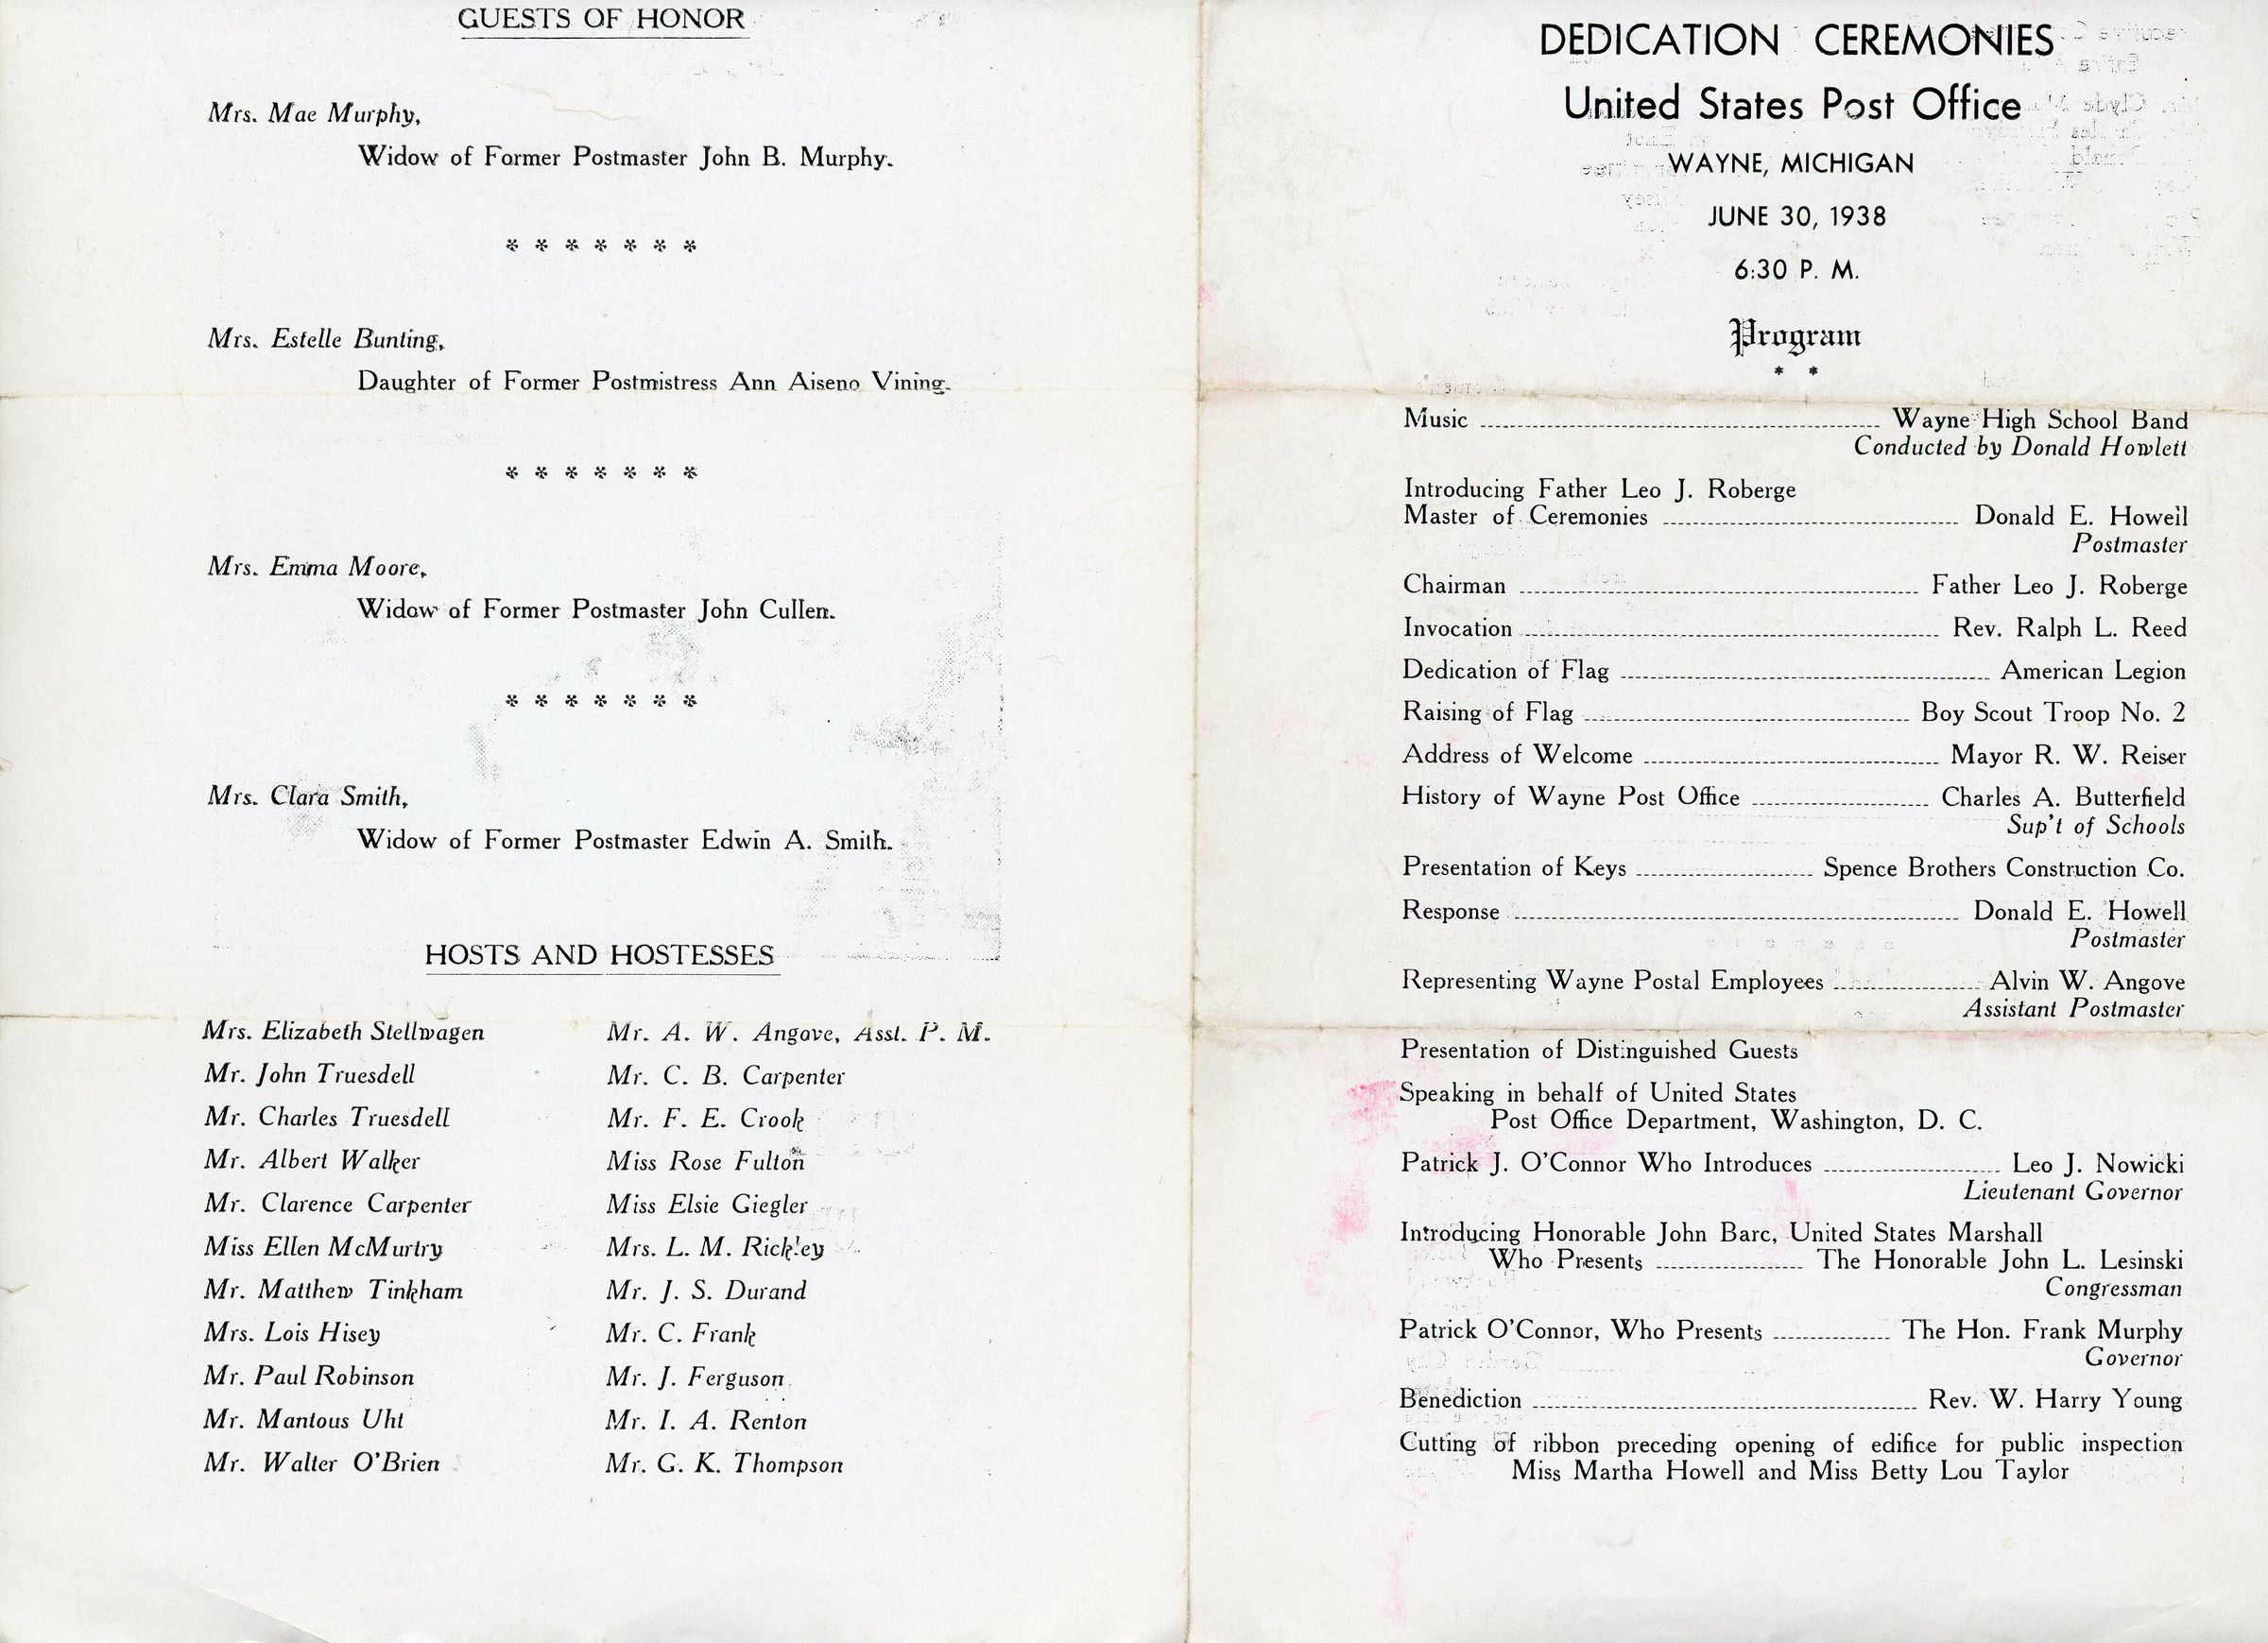 GUESTS OF HONOR
Mrs. Mae Murphy,
Widow of Former Postmaster John B. Murphy.
* * * * * * *
Mrs. Estelle Bunting,
Daughter of Former Postmistress Ann Aiseno Vining.
* * * * * * *
Mrs. Emma Moore,
Widow of Former Postmaster John Cullen.
* * * * * * *
Mrs. Clara Smith,
Widow of Former Postmaster Edwin A. Smith.
HOSTS AND HOSTESSES
Mrs. Elizabeth Stellwagen
Mr. John Truesdell
Mr. Charles Truesdell
Mr. Albert Walker
Mr. Clarence Carpenter
Miss Ellen McMurtry
Mr. Matthew Tinkham
Mrs. Lois Hisey
Mr. Paul Robinson
Mr. Mantous Uht
Mr. Walter O'Brien
Mr. A. W. Angove, Asst. P. M.
Mr. C. B. Carpenter
Mr. F. E. Crook
Miss Rose Fulton
Miss Elsie Giegler
Mrs. L. M. Rickley
Mr. J. S. Durand
Mr. C. Frank
Mr. J. Ferguson
Mr. I. A. Renton
Mr. G. K. Thompson
DEDICATION CEREMONIES
United States Post Office
WAYNE, MICHIGAN
JUNE 30, 1938
6:30 P. M.
Program
* *
Music ........ Wayne High School Band
Conducted by Donald Howlett
Introducing Father Leo J. Roberge
Master of Ceremonies ........ Donald E. Howell
Postmaster
Chairman ........ Father Leo J. Roberge
Invocation ........ Rev. Ralph L. Reed
Dedication of Flag ........ American Legion
Raising of Flag ........ Boy Scout Troop No. 2
Address of Welcome ........ Mayor R. W. Reiser
History of Wayne Post Office ........ Charles A. Butterfield
Sup't of Schools
Presentation of Keys ........ Spence Brothers Construction Co.
Response ........ Donald E. Howell
Postmaster
Representing Wayne Postal Employees ........ Alvin W. Angove
Assistant Postmaster
Presentation of Distinguished Guests
Speaking in behalf of United States
Post Office Department, Washington, D. C.
Patrick J. O'Connor Who Introduces ........ Leo J. Nowicki
Lieutenant Governor
Introducing Honorable John Barc, United States Marshall
Who Presents ........ The Honorable John L. Lesinski
Congressman
Patrick O'Connor, Who Presents ........ The Hon. Frank Murphy
Governor
Benediction ........ Rev. W. Harry Young
Cutting of ribbon preceding opening of edifice for public inspection
Miss Martha Howell and Miss Betty Lou Taylor